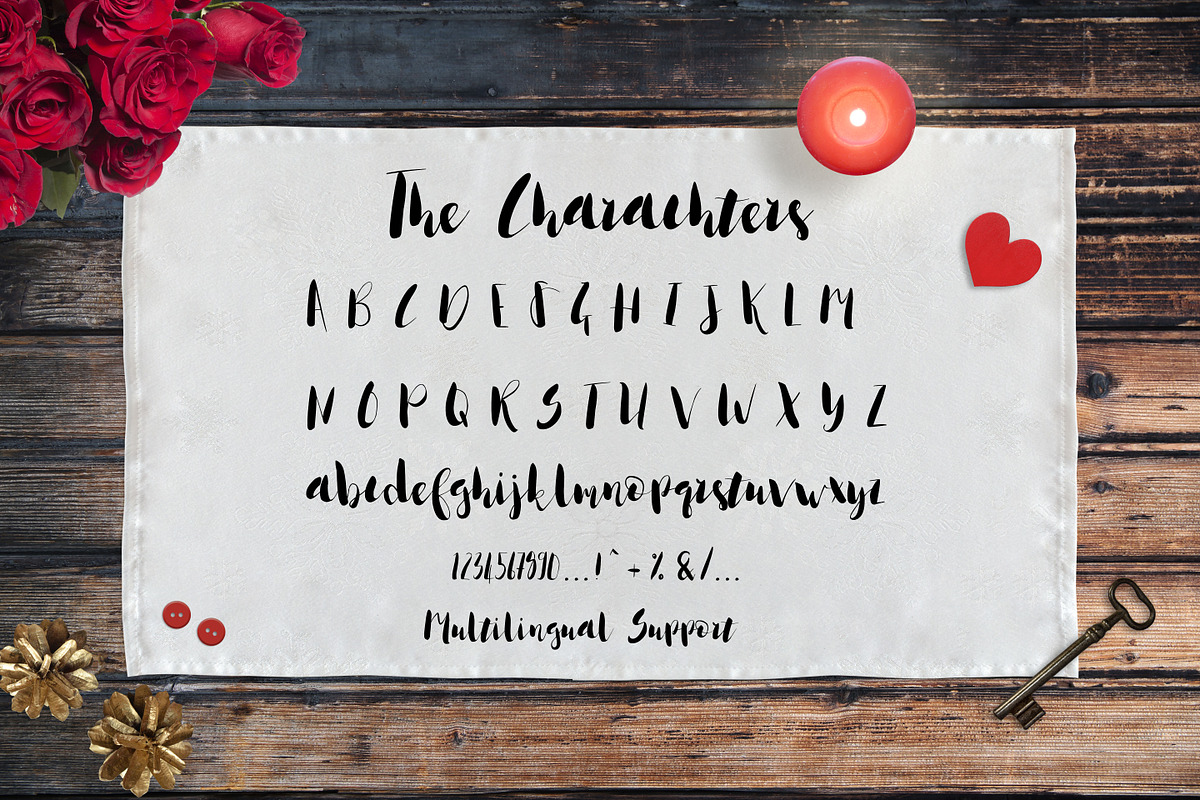 The Charachters
A B C D E F G H I J K L M
N O P Q R S T U V W X Y Z
abcdefghijklmnopqrstuvwxyz
1234567890...!^ + % & / ...
Multilingual Support